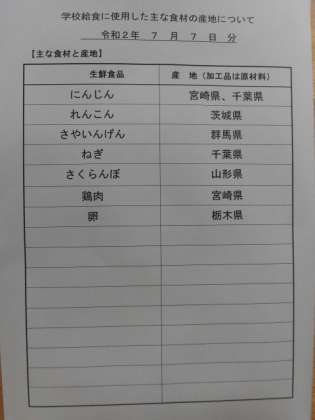 学校給食に使用した主な食材の産地について
令和２年　７　月　７　日　分
【主な食材と産地】
生鮮食品　産　地（加工品は原材料）
にんじん　宮崎県、千葉県
れんこん　茨城県
さやいんげん　群馬県
ねぎ　千葉県
さくらんぼ　山形県
鶏肉　宮崎県
卵　栃木県